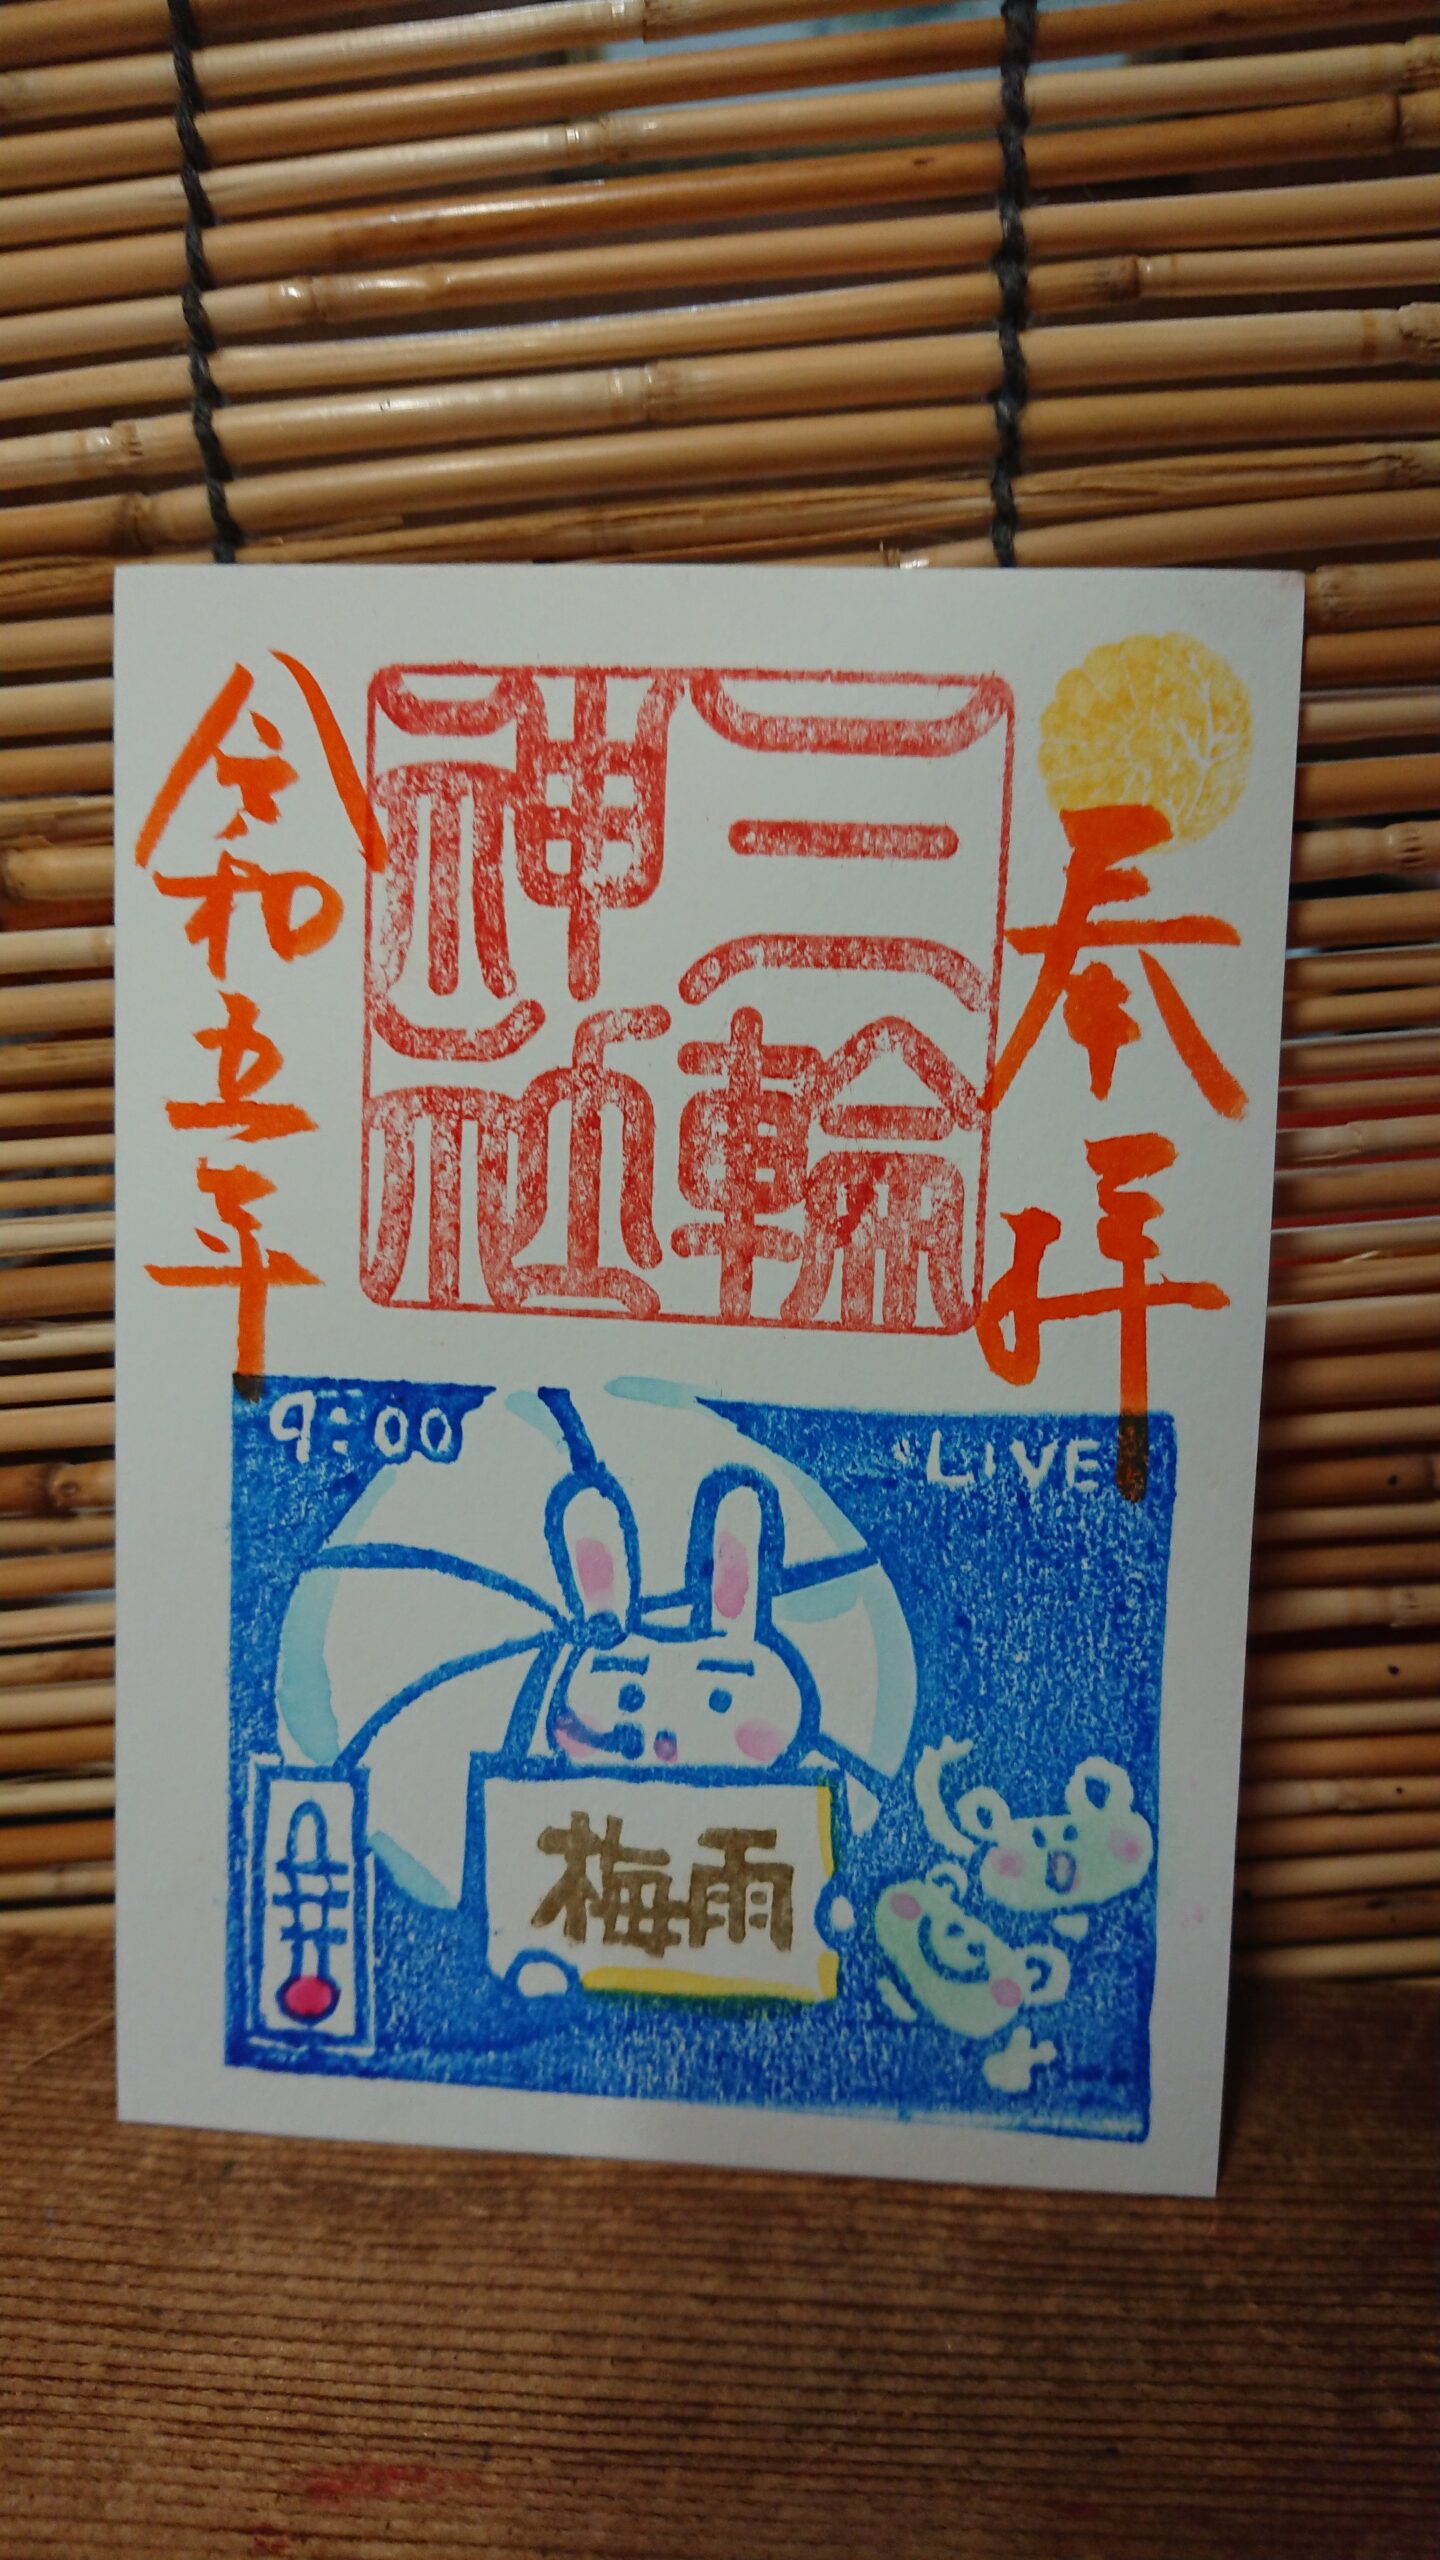 奉拝
三輪
神社
令和五年
9:00
LIVE
梅雨